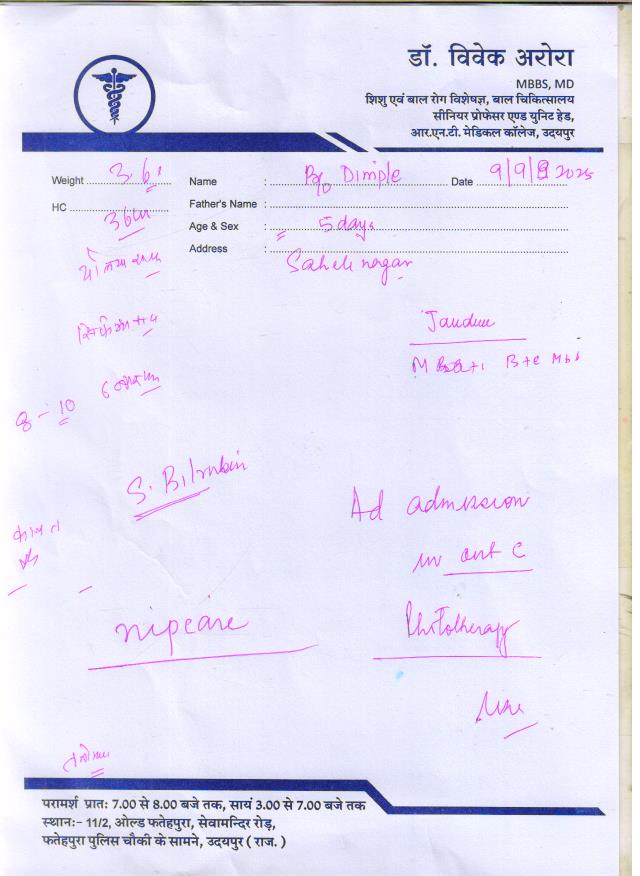 डॉ. विवेक अरोरा
MBBS, MD
शिशु एवं बाल रोग विशेषज्ञ, बाल चिकित्सालय
सीनियर प्रोफेसर एण्ड युनिट हेड,
आर.एन.टी. मेडिकल कॉलेज, उदयपुर
Weight 3.6 Name : B/o Dimple Date 9/9/2025
HC 36cm Father's Name :
Age & Sex : 5 days
Address : Saheli nagar
M B+
8 - 10
S. Bilirubin
Ad admission
in unit C
nipcare
Phototherapy
परामर्श प्रातः 7.00 से 8.00 बजे तक, सायं 3.00 से 7.00 बजे तक
स्थान:- 11/2, ओल्ड फतेहपुरा, सेवामन्दिर रोड़,
फतेहपुरा पुलिस चौकी के सामने, उदयपुर ( राज. )